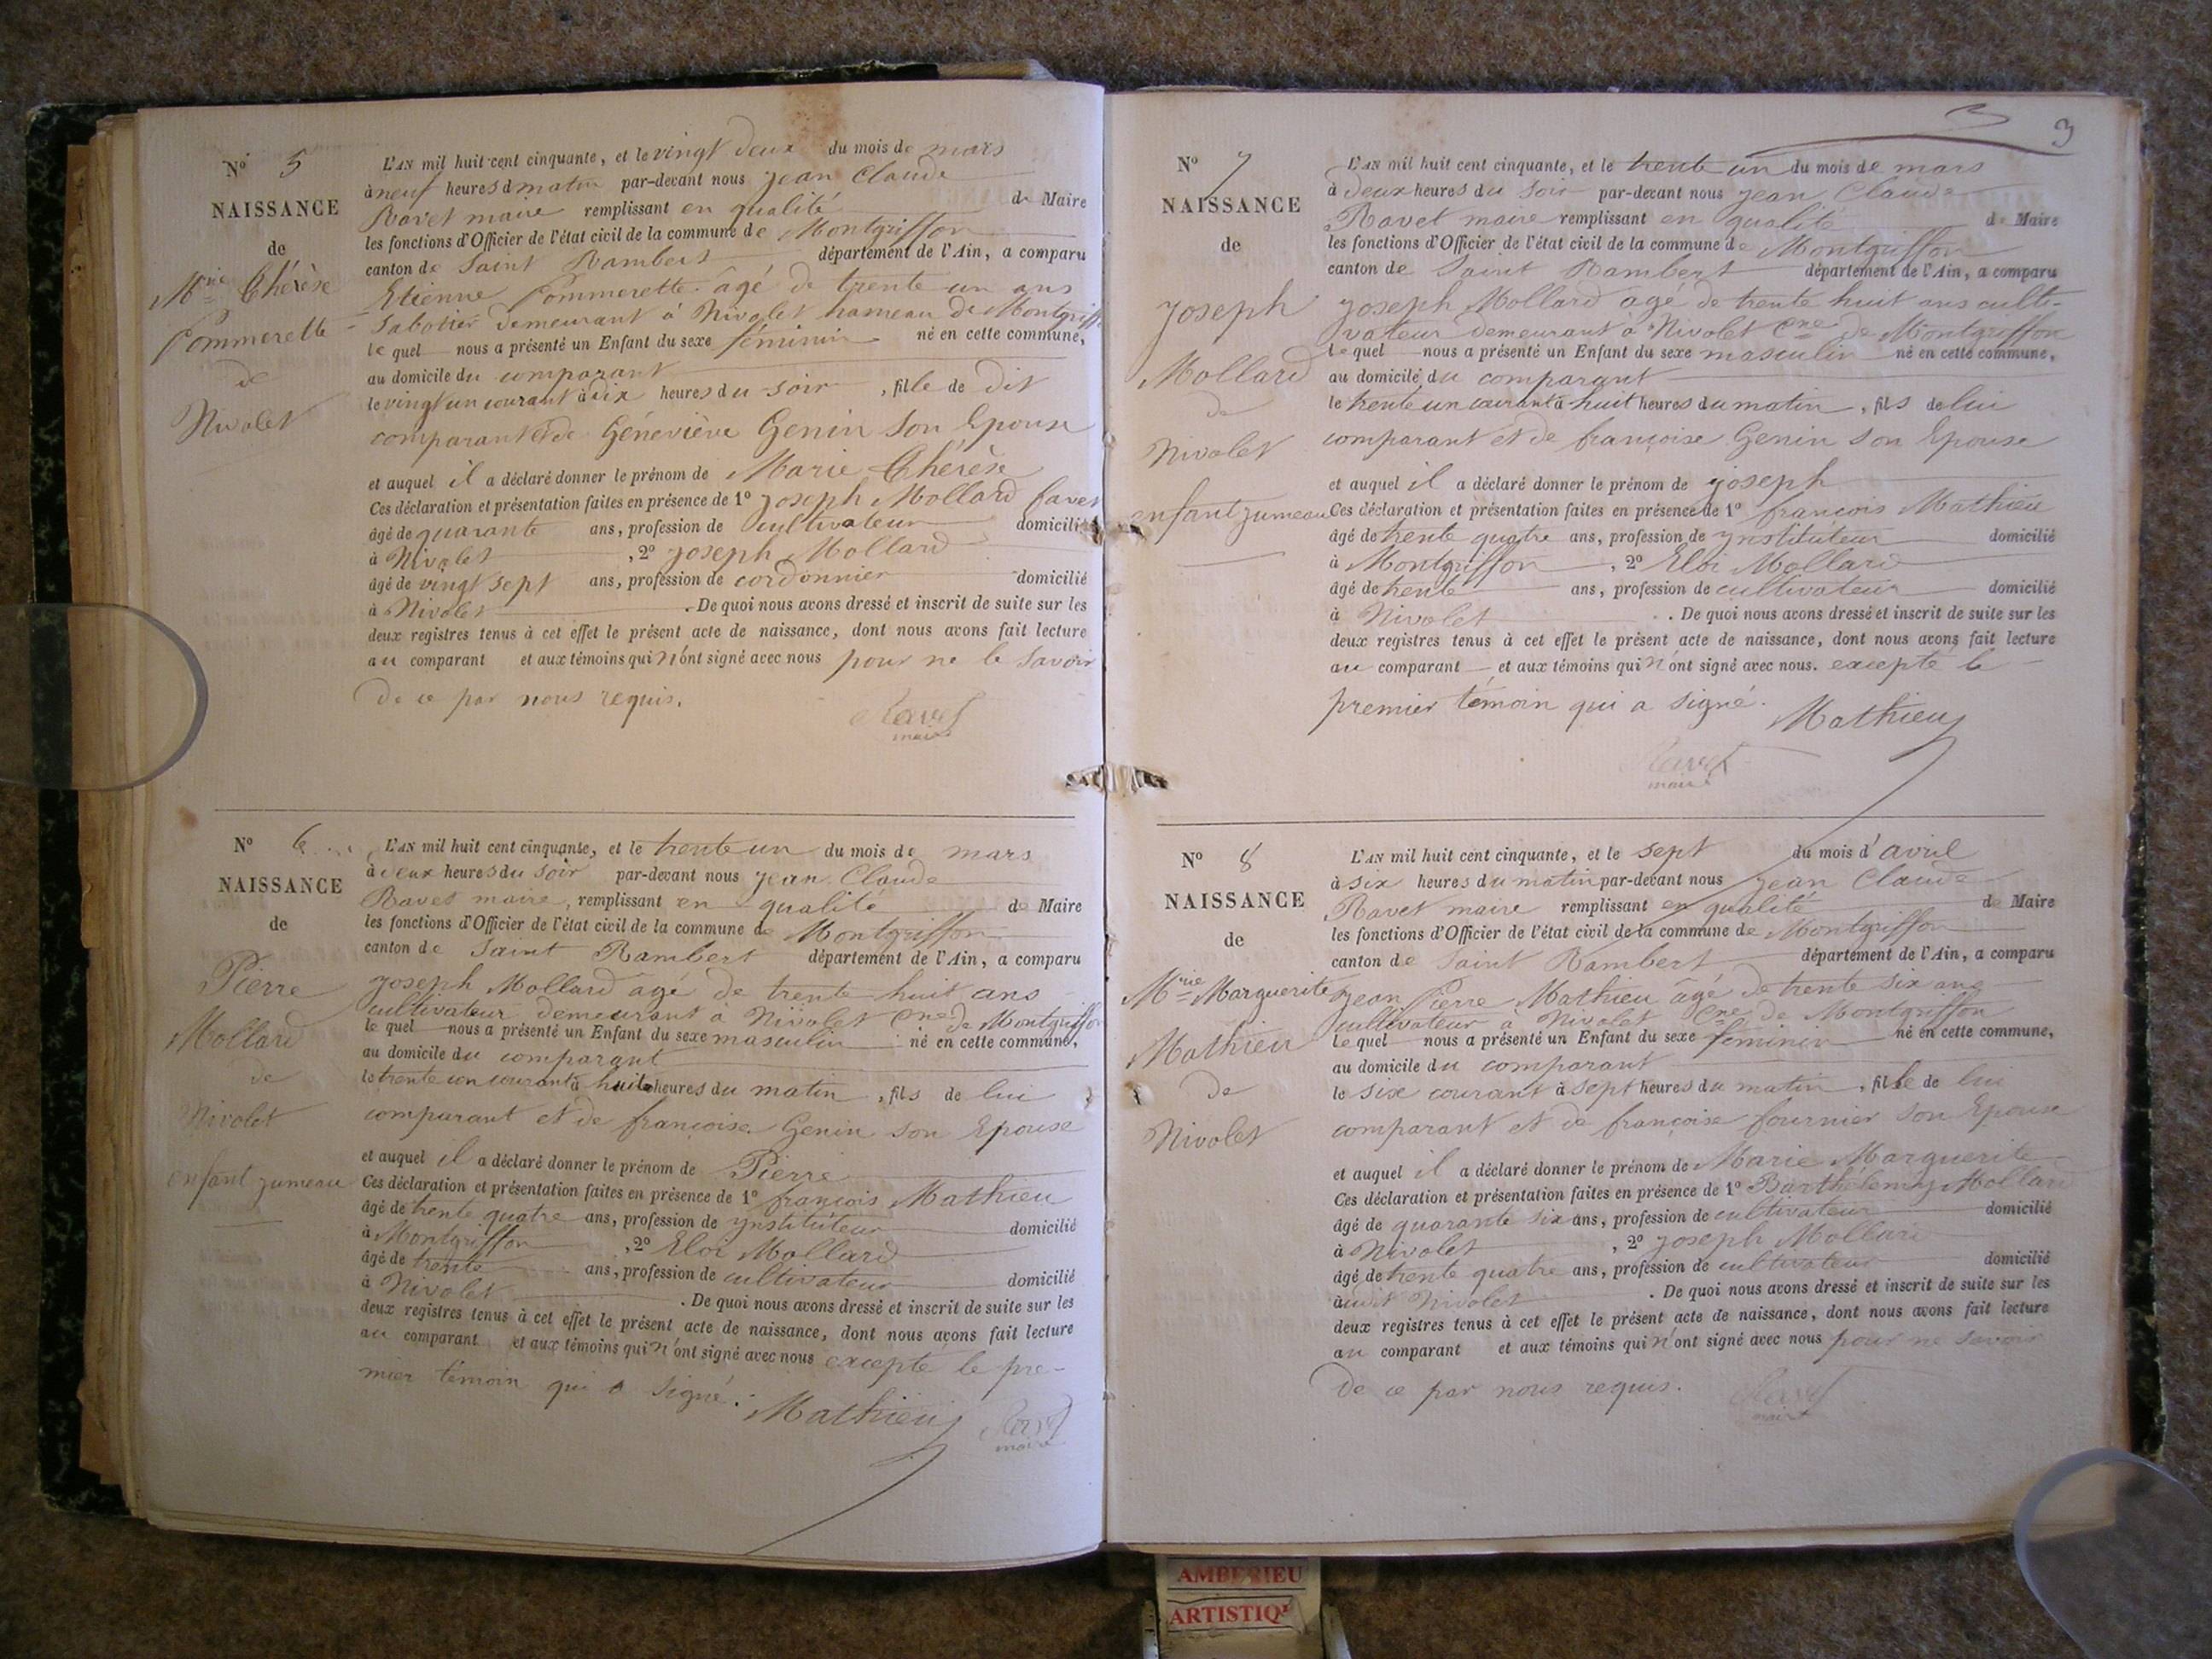 N° 5
NAISSANCE
de
Mrie Thérèse
Pommerette
de
Nivolet
L'AN mil huit cent cinquante, et le vingt deux du mois de mars
à neuf heures d matin par-devant nous Jean Claude
Ravet maire remplissant en qualité de Maire
les fonctions d'Officier de l'état civil de la commune de Montgriffon
canton de Saint Rambert département de l'Ain, a comparu
Etienne Pommerette âgé de trente un ans
Sabotier demeurant à Nivolet hameau de Montgriff
le quel nous a présenté un Enfant du sexe féminin né en cette commune,
au domicile du comparant
le vingt un courant à dix heures du soir, fille de dit
comparant et de Géneviève Genin son Epouse
et auquel il a déclaré donner le prénom de Marie Thérèse
Ces déclaration et présentation faites en présence de 1° Joseph Mollard favet
âgé de quarante ans, profession de cultivateur domicilié
à Nivolet, 2° Joseph Mollard
âgé de vingt sept ans, profession de cordonnier domicilié
à Nivolet. De quoi nous avons dressé et inscrit de suite sur les
deux registres tenus à cet effet le présent acte de naissance, dont nous avons fait lecture
au comparant et aux témoins qui n'ont signé avec nous pour ne le savoir
de ce par nous requis.
Ravet
maire
N° 6
NAISSANCE
de
Pierre
Mollard
de
Nivolet
enfant jumeau
L'AN mil huit cent cinquante, et le trente un du mois de mars
à deux heures du soir par-devant nous Jean Claude
Ravet maire, remplissant en qualité de Maire
les fonctions d'Officier de l'état civil de la commune de Montgriffon
canton de Saint Rambert département de l'Ain, a comparu
Joseph Mollard âgé de trente huit ans
cultivateur demeurant à Nivolet Cne de Montgriffon
le quel nous a présenté un Enfant du sexe masculin né en cette commune,
au domicile du comparant
le trente un courant à huit heures du matin, fils de lui
comparant et de françoise Genin son Epouse
et auquel il a déclaré donner le prénom de Pierre
Ces déclaration et présentation faites en présence de 1° françois Mathieu
âgé de trente quatre ans, profession de ynstituteur domicilié
à Montgriffon, 2° Eloi Mollard
âgé de trente ans, profession de cultivateur domicilié
à Nivolet. De quoi nous avons dressé et inscrit de suite sur les
deux registres tenus à cet effet le présent acte de naissance, dont nous avons fait lecture
au comparant et aux témoins qui n'ont signé avec nous excepté le pre-
mier témoin qui a signé.
Mathieu Ravet
maire
3
N° 7
NAISSANCE
de
Joseph
Mollard
de
Nivolet
enfant jumeau
L'AN mil huit cent cinquante, et le trente un du mois de mars
à deux heures du soir par-devant nous Jean Claude
Ravet maire remplissant en qualité de Maire
les fonctions d'Officier de l'état civil de la commune de Montgriffon
canton de Saint Rambert département de l'Ain, a comparu
Joseph Mollard agé de trente huit ans culti-
vateur demeurant à Nivolet Cne de Montgriffon
le quel nous a présenté un Enfant du sexe masculin né en cette commune,
au domicile du comparant
le trente un courant à huit heures du matin, fils de lui
comparant et de françoise Genin son Epouse
et auquel il a déclaré donner le prénom de joseph
Ces déclaration et présentation faites en présence de 1° françois Mathieu
âgé de trente quatre ans, profession de ynstituteur domicilié
à Montgriffon, 2° Eloi Mollard
âgé de trente ans, profession de cultivateur domicilié
à Nivolet. De quoi nous avons dressé et inscrit de suite sur les
deux registres tenus à cet effet le présent acte de naissance, dont nous avons fait lecture
au comparant et aux témoins qui n'ont signé avec nous. excepté le
premier témoin qui a signé.
Mathieu
Ravet
maire
N° 8
NAISSANCE
de
Mrie Marguerite
Mathieu
de
Nivolet
L'AN mil huit cent cinquante, et le sept du mois d'avril
à six heures du matin par-devant nous Jean Claude
Ravet maire remplissant en qualité de Maire
les fonctions d'Officier de l'état civil de la commune de Montgriffon
canton de Saint Rambert département de l'Ain, a comparu
Jean Pierre Mathieu âgé de trente six ans
cultivateur à Nivolet Cne de Montgriffon
le quel nous a présenté un Enfant du sexe féminin né en cette commune,
au domicile du comparant
le six courant à sept heures du matin, fille de lui
comparant et de françoise fournier son Epouse
et auquel il a déclaré donner le prénom de Marie Marguerite
Ces déclaration et présentation faites en présence de 1° Barthélemy Mollard
âgé de quarante six ans, profession de cultivateur domicilié
à Nivolet, 2° Joseph Mollard
âgé de trente quatre ans, profession de cultivateur domicilié
audit Nivolet. De quoi nous avons dressé et inscrit de suite sur les
deux registres tenus à cet effet le présent acte de naissance, dont nous avons fait lecture
au comparant et aux témoins qui n'ont signé avec nous pour ne savoir
de ce par nous requis.
Ravet
maire
AMBERIEU
ARTISTIQ